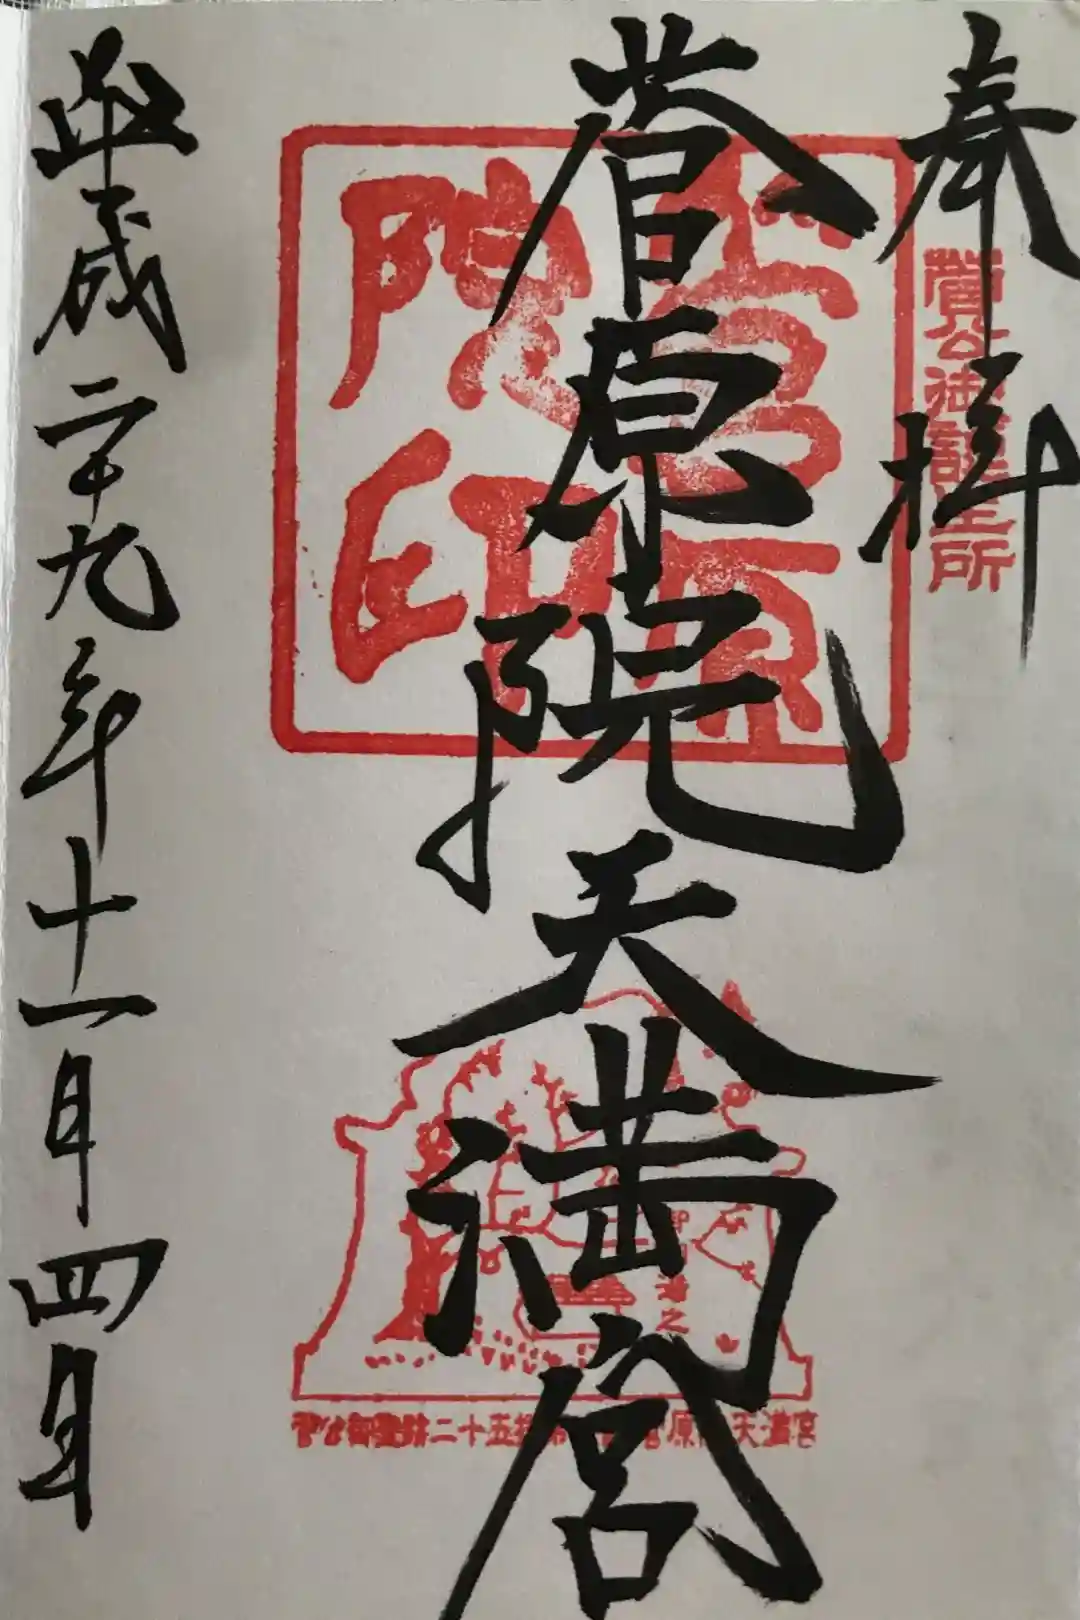 奉拝
菅公御誕生所
菅原院天満宮
菅原院印
菅公御聖蹟二十五拝第
原 天満宮
平成二十九年十一月四日